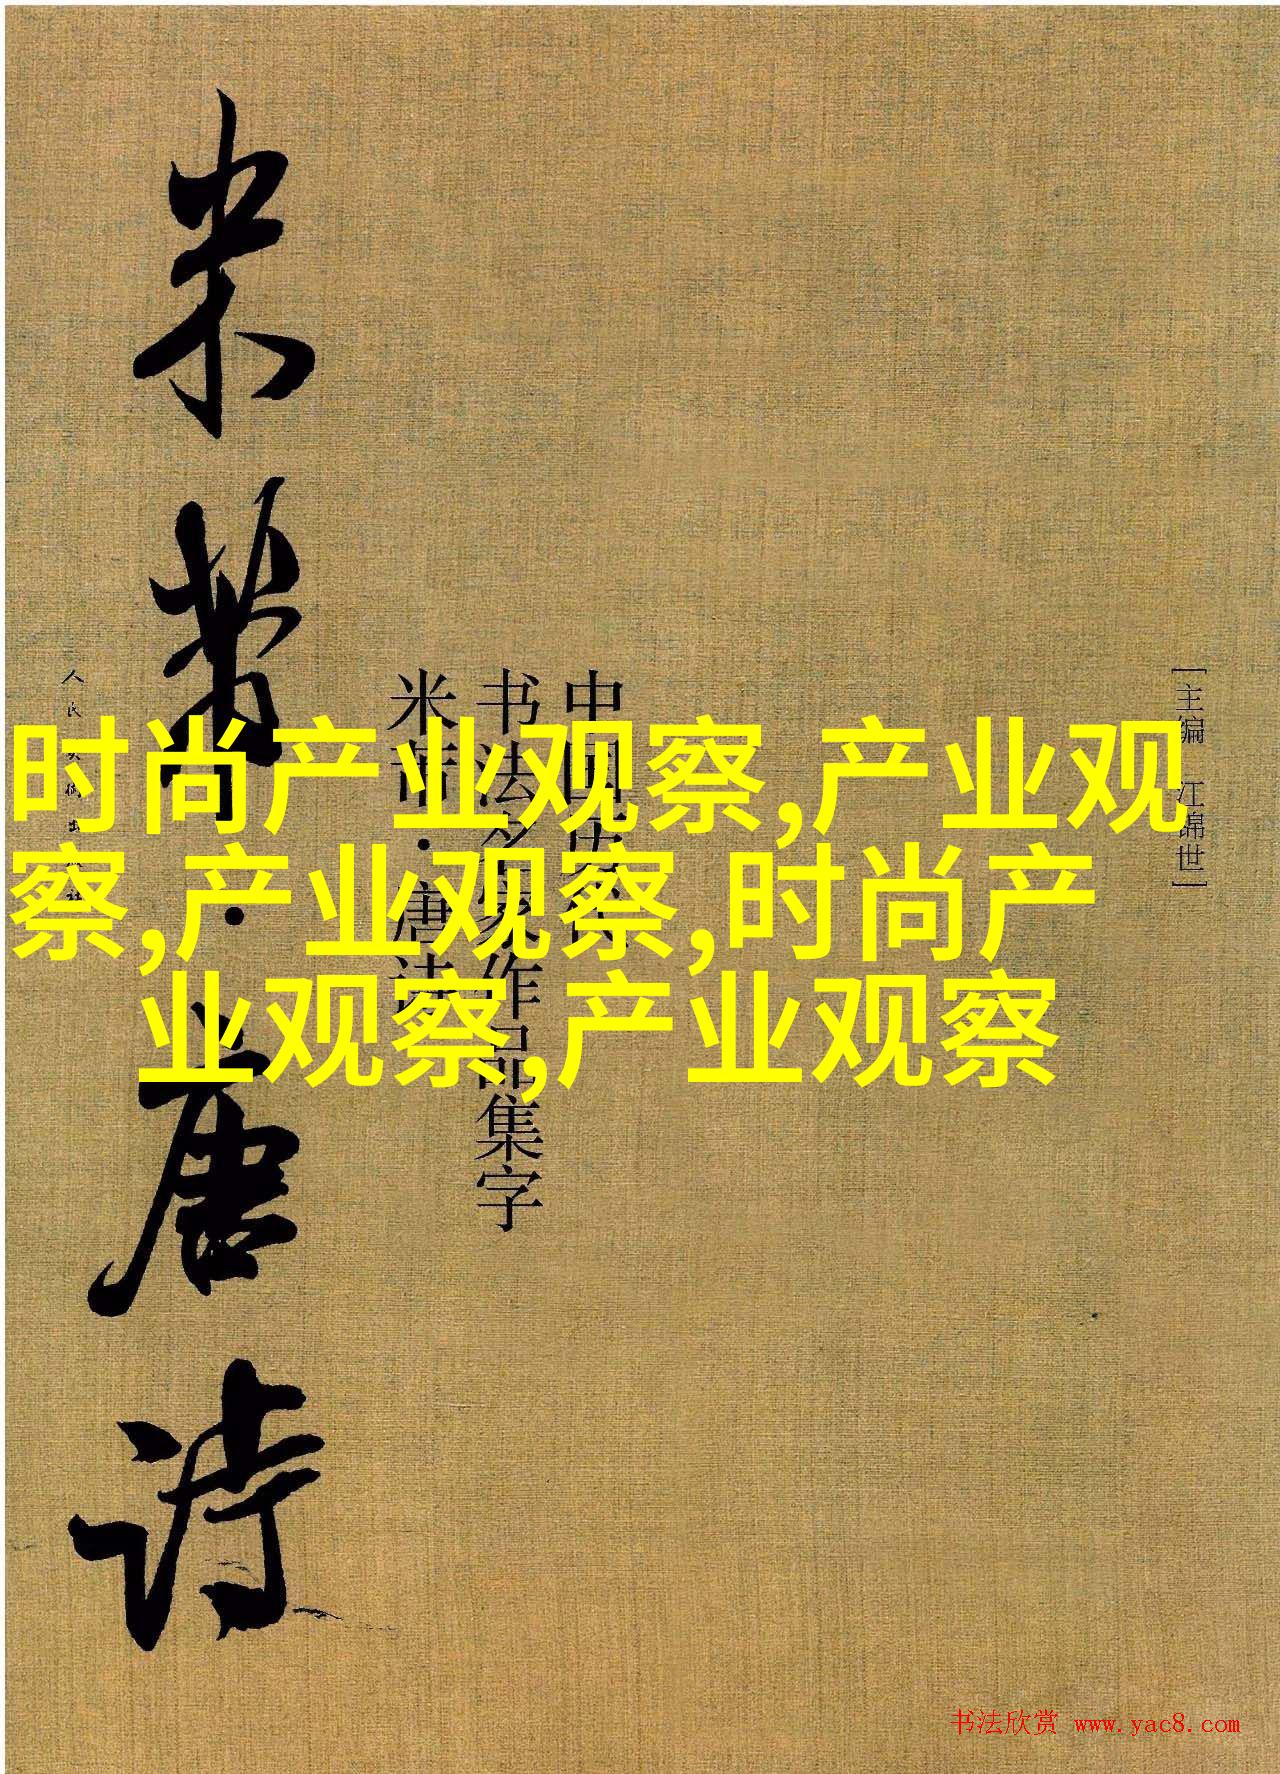 米芾·唐诗
中国历代
书法名家作品集字
米芾·唐诗
[主编 江锦世]
人民美术出版社
时尚产业观察,产业观
察,产业观察,时尚产
业观察,产业观察
书法欣赏 www.yac8.com